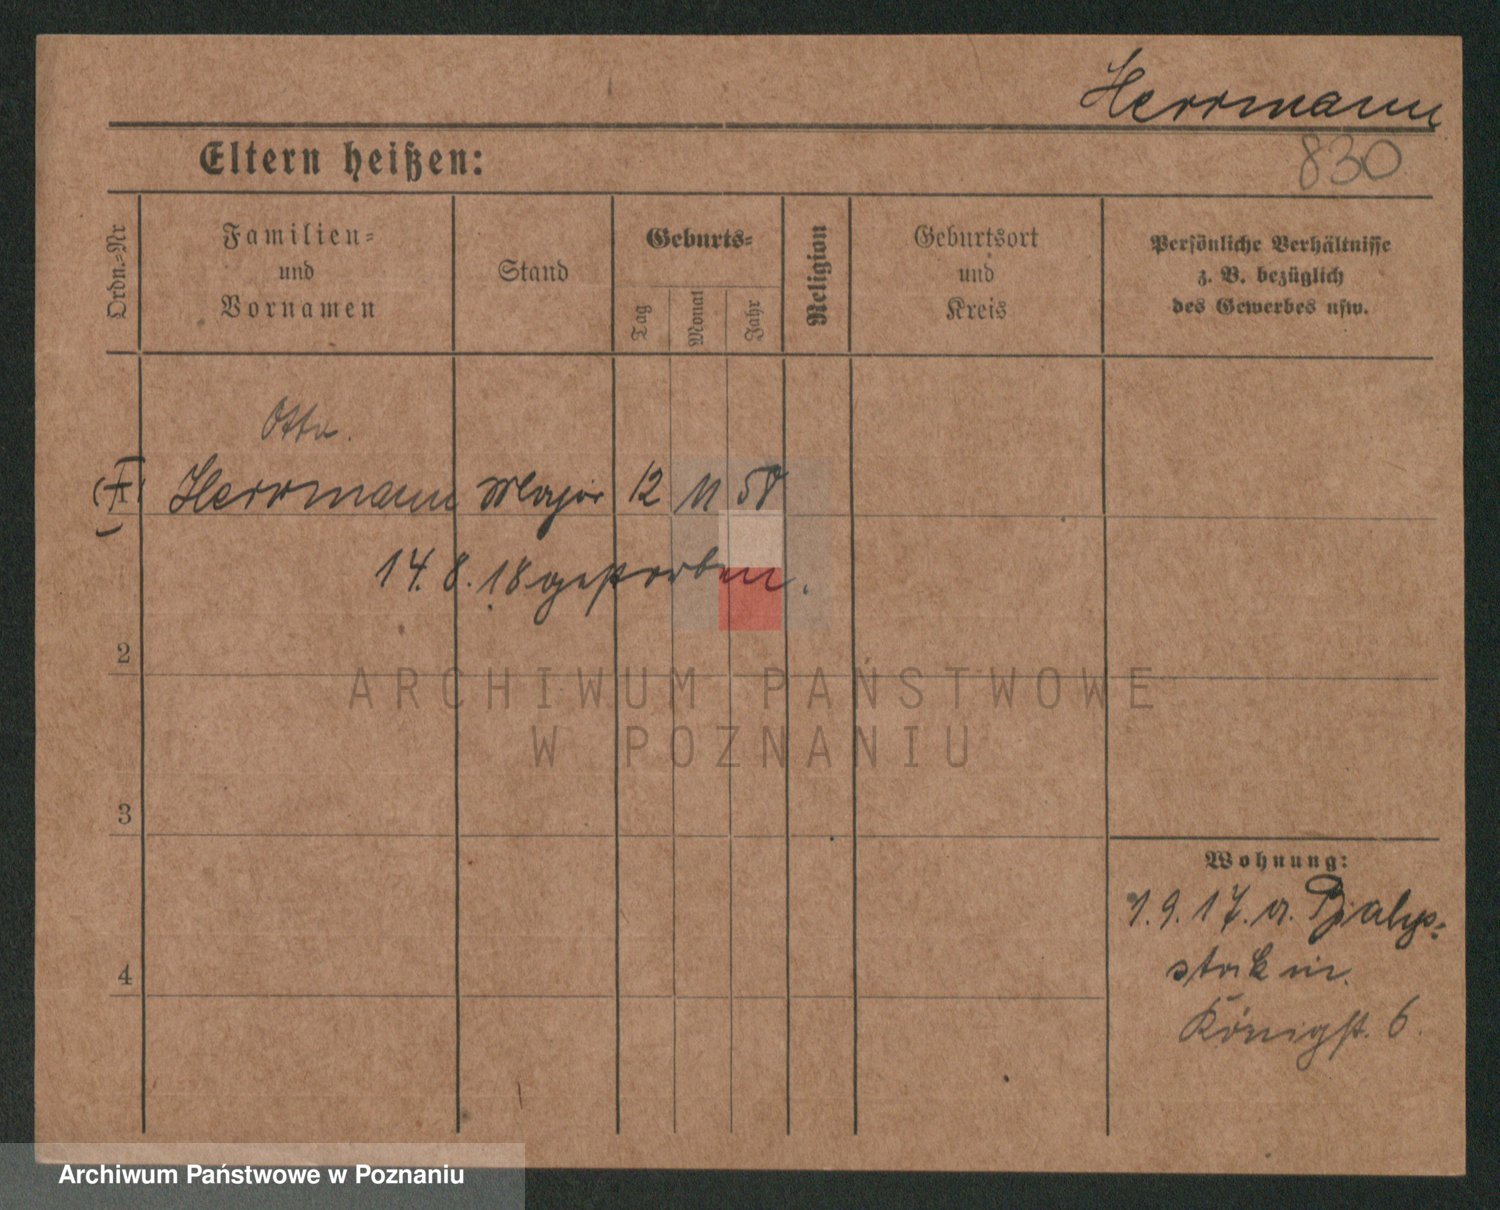 Herrmann
830
Eltern heißen:
Ordn.-Nr
Familien-
und
Vornamen
Stand
Geburts-
Tag
Monat
Jahr
Religion
Geburtsort
und
Kreis
Persönliche Verhältnisse
z. B. bezüglich
des Gewerbes usw.
Otto.
Herrmann Major 12 11 58
14.8.18 gestorben.
2
ARCHIWUM PAŃSTWOWE
W POZNANIU
3
Wohnung:
1.9.17. a. Bjalys-
stok in
4
Königst. 6.
Archiwum Państwowe w Poznaniu